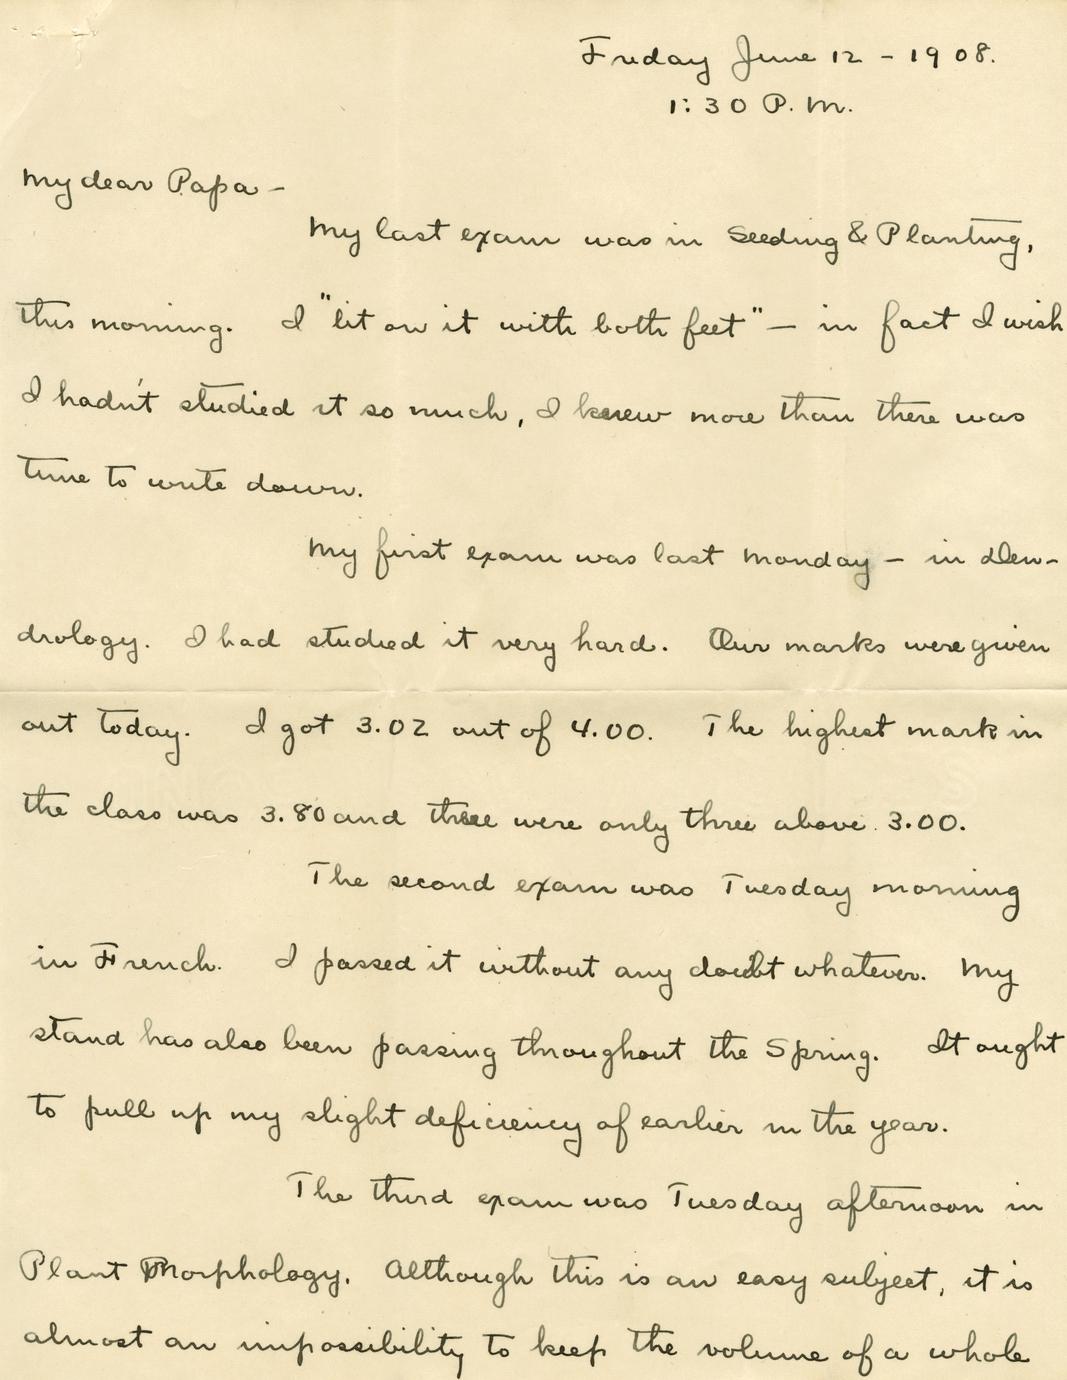 Friday June 12 - 1908.
1:30 P.M.
My dear Papa -
My last exam was in Seeding & Planting,
this morning. I "lit on it with both feet" - in fact I wish
I hadn't studied it so much, I knew more than there was
time to write down.
My first exam was last Monday - in Den-
drology. I had studied it very hard. Our marks were given
out today. I got 3.02 out of 4.00. The highest mark in
the class was 3.80 and there were only three above 3.00.
The second exam was Tuesday morning
in French. I passed it without any doubt whatever. My
stand has also been passing throughout the Spring. It ought
to pull up my slight deficiency of earlier in the year.
The third exam was Tuesday afternoon in
Plant Morphology. Although this is an easy subject, it is
almost an impossibility to keep the volume of a whole